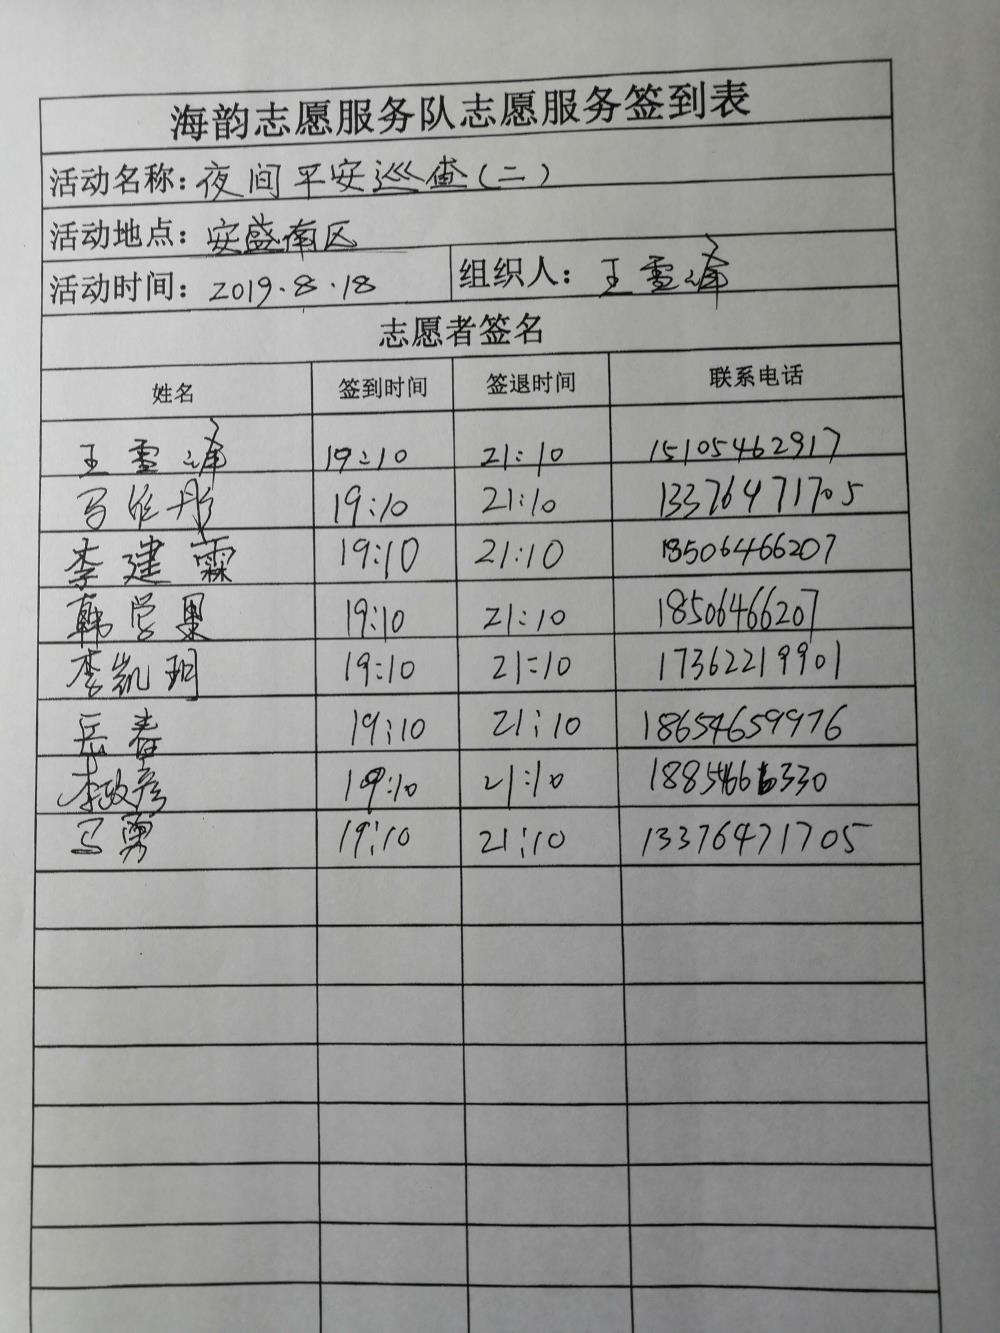 海韵志愿服务队志愿服务签到表
活动名称：夜间平安巡查（二）
活动地点：安盛南区
活动时间：2019.8.18 组织人：王雪峰
志愿者签名
姓名 签到时间 签退时间 联系电话
王雪峰 19:10 21:10 15105462917
马 彤 19:10 21:10 13376471705
李建霖 19:10 21:10 18506466207
韩学果 19:10 21:10 18506466207
李凯玥 19:10 21:10 17362219901
岳春 19:10 21:10 18654659976
李政彦 19:10 21:10
马勇 19:10 21:10 13376471705